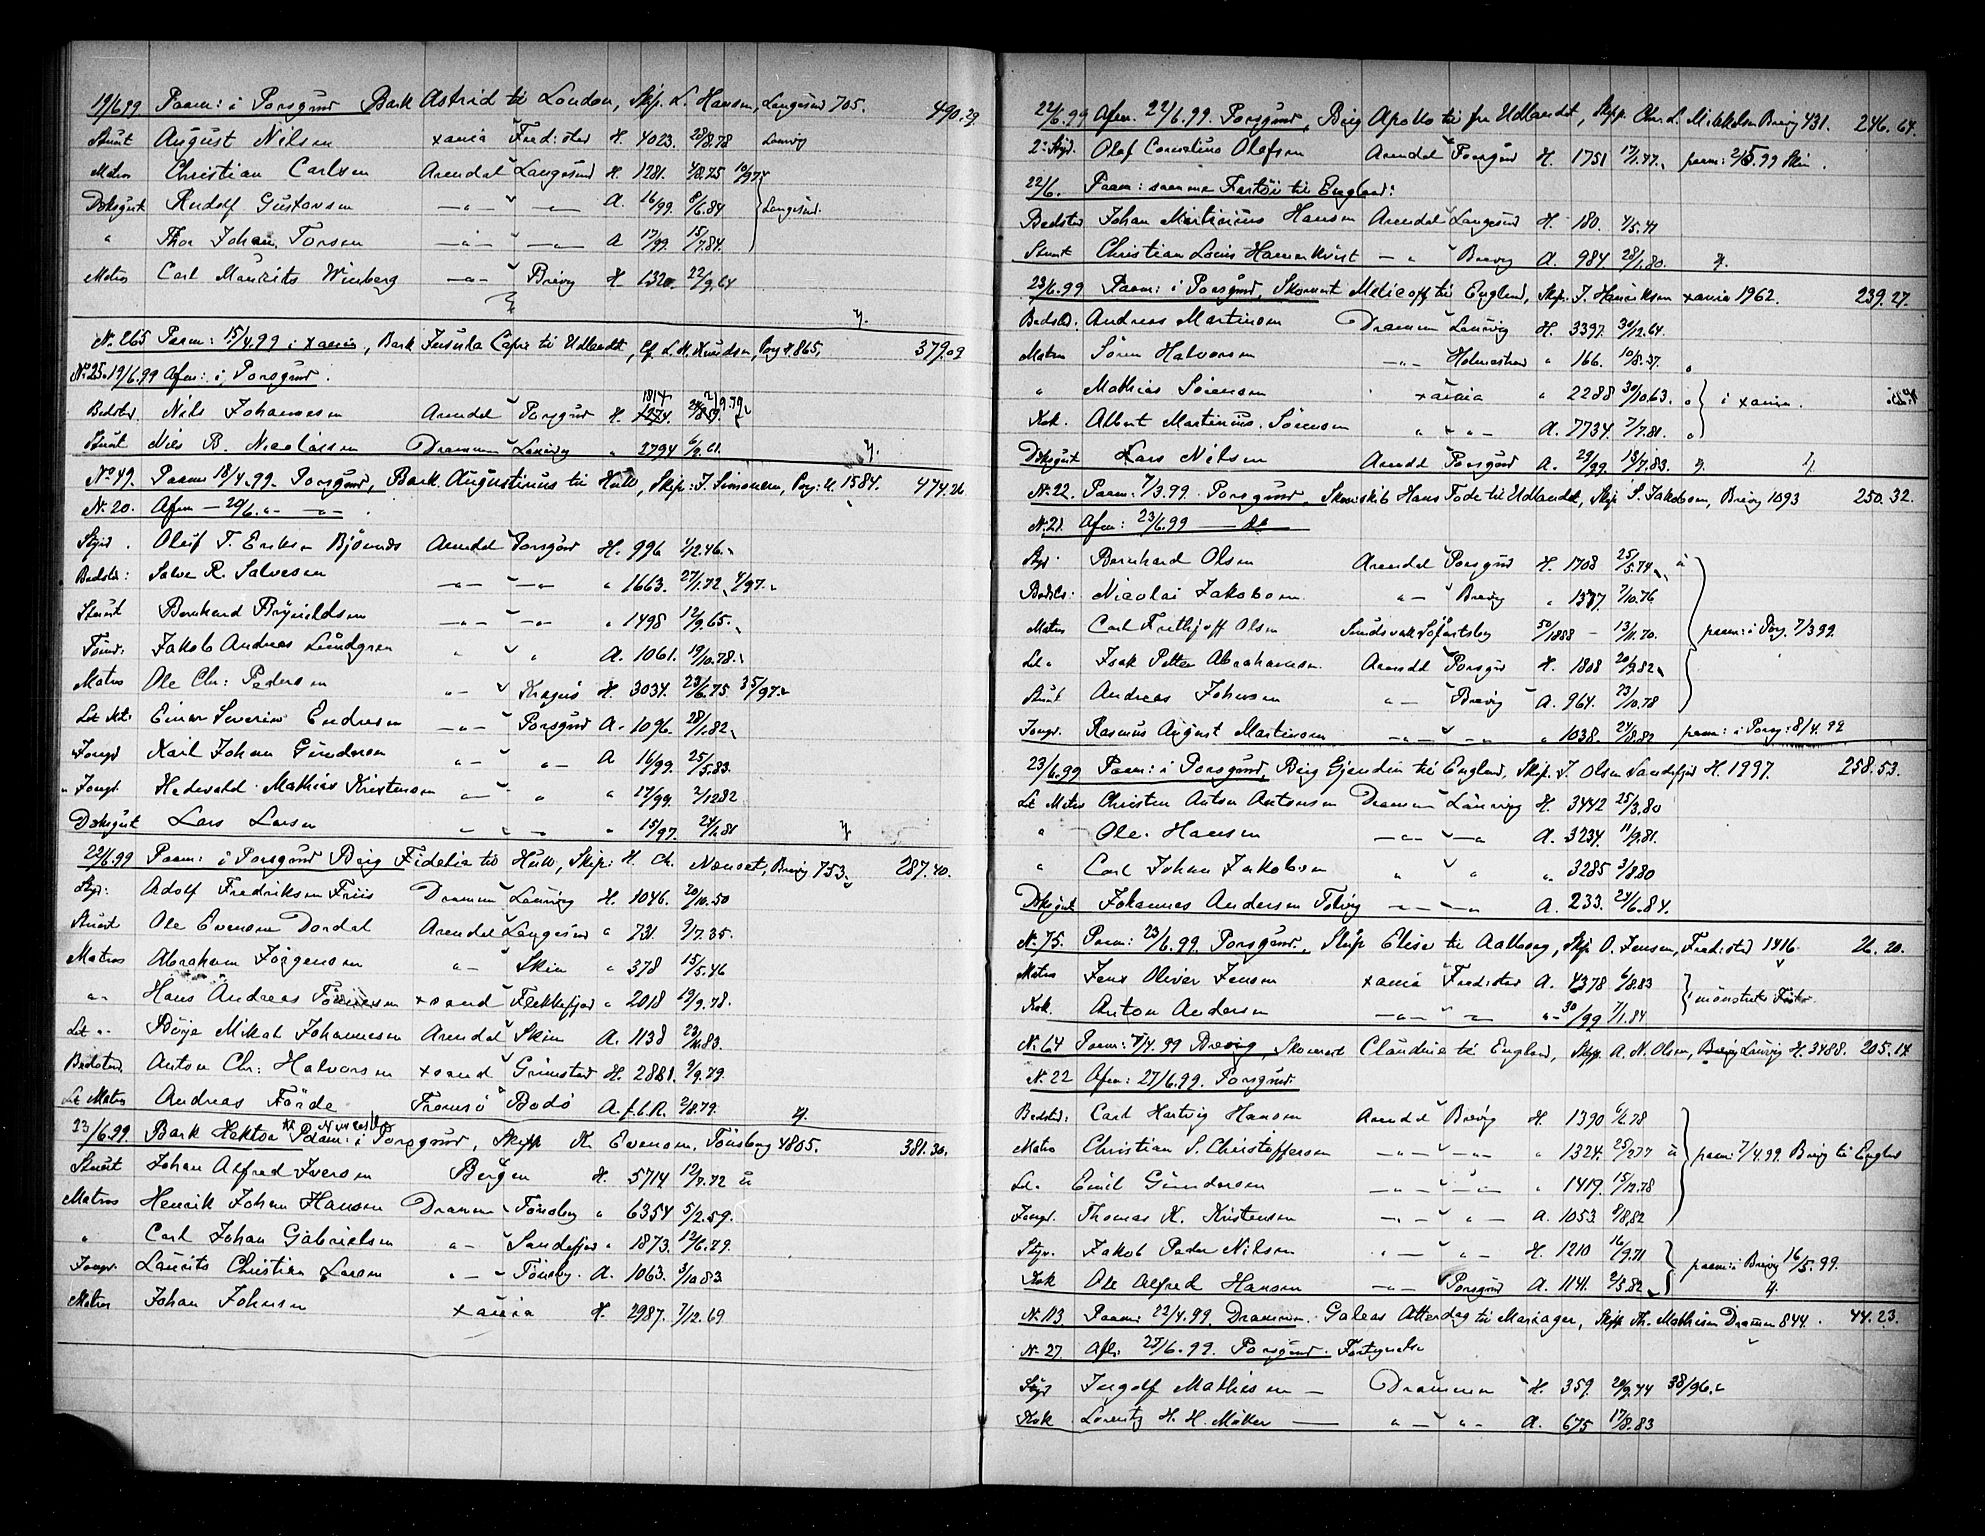 19/6.99 Paam: i Porsgrund Bark Astrid til London, Skip. L. Hansen, Langesund 705. 490.29.
Stuert August Nilsen xania Fredrstad H. 4023. 28/8.78 Laurvig
Matros Christian Carlsen Arendal Langesund H. 1281. 4/12.75 10/97
Dæksgut Rudolf Gustavsen — „ — „ — „ — A. 16/99. 8/6.84 Langesund.
„ Thor Johan Torsen — „ — „ — „ — A 17/99. 15/7.84.
Matros Carl Mauritz Winberg — „ — „ Brevig H. 1320. 22/9.64
N. 265 Paam: 15/4.99 i xania, Bark Insula Capri til Udlandet, Cf. L. M. Knudsen, Porsg. H 865, 379.09
No 25. 19/6.99 Afm: i Porsgrund.
Bedstd. Nils Johannesen Arendal Porsgrund H. 1814
Stuert Nils B. Nicolaisen Drammen Laurvig „ 2794 6/9.61.
No 49. Paam 18/4.99. Porsgrund, Bark Augustinus til Hull, Skip: J. Simonsen, Porsg. H. 1584. 474.26
N. 20. Afm — 20/6. „ — „ —
Styrd. Oluf T. Eriksen Bjønnes Arendal Porsgrund H. 996 1/2.46.
Bedstd: Salve R. Salvesen — „ — „ — „ 1663. 27/1.72 4/97.
Stuert Bernhard Brynildsen — „ — „ — „ 1498 12/9.65.
Tømd. Jakob Andreas Lundgren „ „ „ A. 1061. 19/10.78.
Matros Ole Chr: Pedersen „ — „ Kragerø H. 3034. 23/6.75 35/97.
Let Mt. Einar Severin Endresen — „ — „ Porsgrund A. 1096. 28/1.82.
Jungd Karl Johan Gundersen „ — „ „ — A 16/99. 25/5.83.
„ Jungd. Hedevald Mathias Kristensen — „ — „ „ „ 17/99. 2/12.82
Dæksgut Lars Larsen „ „ — „ — „ 15/97. 24/1.81
22/6.99 Paam: i Porsgrund Brig Fidelia til Hull, Skip: H. Ch. Nænset, Brevig 753. 287.40.
Styr: Adolf Fredriksen Friis Drammen Laurvig H. 1046. 20/10.50
Stuert Ole Evensen Dordal Arendal Langesund „ 731. 9/7.35.
Matros Abraham Jørgensen „ — „ Skien „ 378 15/5.46
„ Hans Andreas xsand Flekkefjord „ 2018 19/9.78.
Let „ Børje Mikal Johannesen Arendal Skien A. 1138
Bedstmd. Anton Chr: Halvorsen xsand Grimstad H. 2881. 3/9.79.
Let Matros Andreas Førde Tromsø Bodø A.f.l.R. 2/8.79.
23/6.99. Bark Hektor Paam: i Porsgrund, Skipp K. Evensen, Tönsberg 4805. 381.30.
Stuert Johan Alfred Iversen Bergen H. 5714 12/7.72
Matros Henrik Johan Hansen Drammen Tönsberg „ 6354 5/2.59.
„ Carl Johan Gabrielsen „ — „ Sandefjord „ 1873. 12/6.79.
Jungd. Laurits Christian Larsen „ — „ Tönsbg. A. 1063. 3/10.83
Matros Johan Johnsen xania H. 2987. 7/12.69
22/6.99 Afm. 22/6.99. Porsgrund, Brig Apollo til fra Udlandet, Skip. Chr. L. Mikkelsen Brevig 431. 246.64.
2. Styd. Olaf Cornelius Olafsen Arendal Porsgrund H. 1751 17/1.77. paam: 2/5.99 Skien.
22/6. Paam: samme Fartøi til England:
Bedstd Johan Martinius Hansen Arendal Langesund H. 180. 4/5.41
Stuert Christian Louis Hammerkvist — „ Brevig A. 984. 28/1.80.
23/6.99 Paam: i Porsgrund, Skonnert Melicoff til England, Skip. J. Henriksen xania 1962. 239.27.
Bedstd. Andreas Martinsen Drammen Laurvig H. 3397. 30/12.64.
Matros Søren Halvorsen — „ — Holmestrand „ 166. 10/8.37.
„ Mathias Sørensen xania „ 2288 30/10.63. i xania.
Kok. Albert Martinius Sørensen „ „ — „ — A. 7734. 7/7.81.
Dæksgut Lars Nilsen Arendal Porsgrund A. 29/99. 18/7.83.
N. 22. Paam: 7/3.99. Porsgrund, Skonskib Hans Tode til Udlandet, Skip S. Jakobsen, Brevig 1093 250.32.
N. 21. Afm: 23/6.99 — do —
Styr Bernhard Olsen Arendal Porsgrund H. 1708 25/5.74
Bedstd: Nicolai Jakobsen „ — „ Brevig „ 1537. 7/10.76
Matros Carl Frithjoff Olsen Sundsvall Sjöfartsbog 50/1888 — 13/11.70. paam: i Porsg. 7/3.99.
Let „ Isak Petter Abrahamsen Arendal Porsgrund H. 1808 20/9.82
Stuert Andreas Johnsen „ — „ Brevig A. 964. 23/10.78
Jungd. Rasmus August Martinsen — „ — „ — „ — „ 1038. 24/8.82 paam: i Porsg: 8/4.99
23/6.99 Paam: i Porsgrund, Brig Gjendin til England, Skip. J. Olsen Sandefjord H. 1997. 258.53.
Let Matros Christen Anton Antonsen Drammen Laurvig H. 3442 25/3.80
„ Ole Hansen — „ — „ — „ A. 3234. 11/9.81.
„ Carl Johan Jakobsen „ „ „ „ 3285 3/8.80
Dæksgut Johannes Andersen Tolvig — „ — „ — „ A. 233. 24/6.84.
N. 75. Paam: 23/6.99. Porsgrund. Skip Elise til Aalborg, Skip O. Jensen, Fredrstad 1416. 26.20.
Matros Jens Oliver Jensen xania Fredrstad A. 4378 6/8.83
Kok. Anton Andersen — „ — „ — „ 30/99 7/1.84
N. 64 Paam: 7/4.99 Brevig, Skonnert Claudine til England, Skipp. A. N. Olsen, Laurvig H. 3488. 205.14
N. 22 Afm: 27/6.99. Porsgrund.
Bedstd: Carl Hartvig Hansen Arendal Brevig H. 1390 6/1.78
Matros Christian S. Christoffersen — „ — „ — „ — „ 1324. 25/2.77 paam: 7/4.99. Brevig til England
Let „ Emil Gundersen — „ — „ — „ — „ 1419. 15/12.78
Jungd. Thomas K. Kristensen — „ — „ — A. 1053. 8/8.82
Styr. Jakob Peder Nilsen „ — „ „ — H. 1210 16/9.71
Kok Ole Alfred Hansen — „ — Porsgrund A. 1141. 2/3.82 paam: i Brevig 16/5.99.
N. 113 Paam: 22/4.99. Drammen. Galeas Atterdag til Mariager, Skipp Th. Mathisen Drammen 844. 44.23.
N. 27. Afm. 27/6.99. Porsgrund. Fortegnelse
Styd Ingolf Mathisen — Drammen H. 359. 29/9.74 38/96.
Kok Lorentz H. H. Möller — „ — „ — A. 675 17/8.83